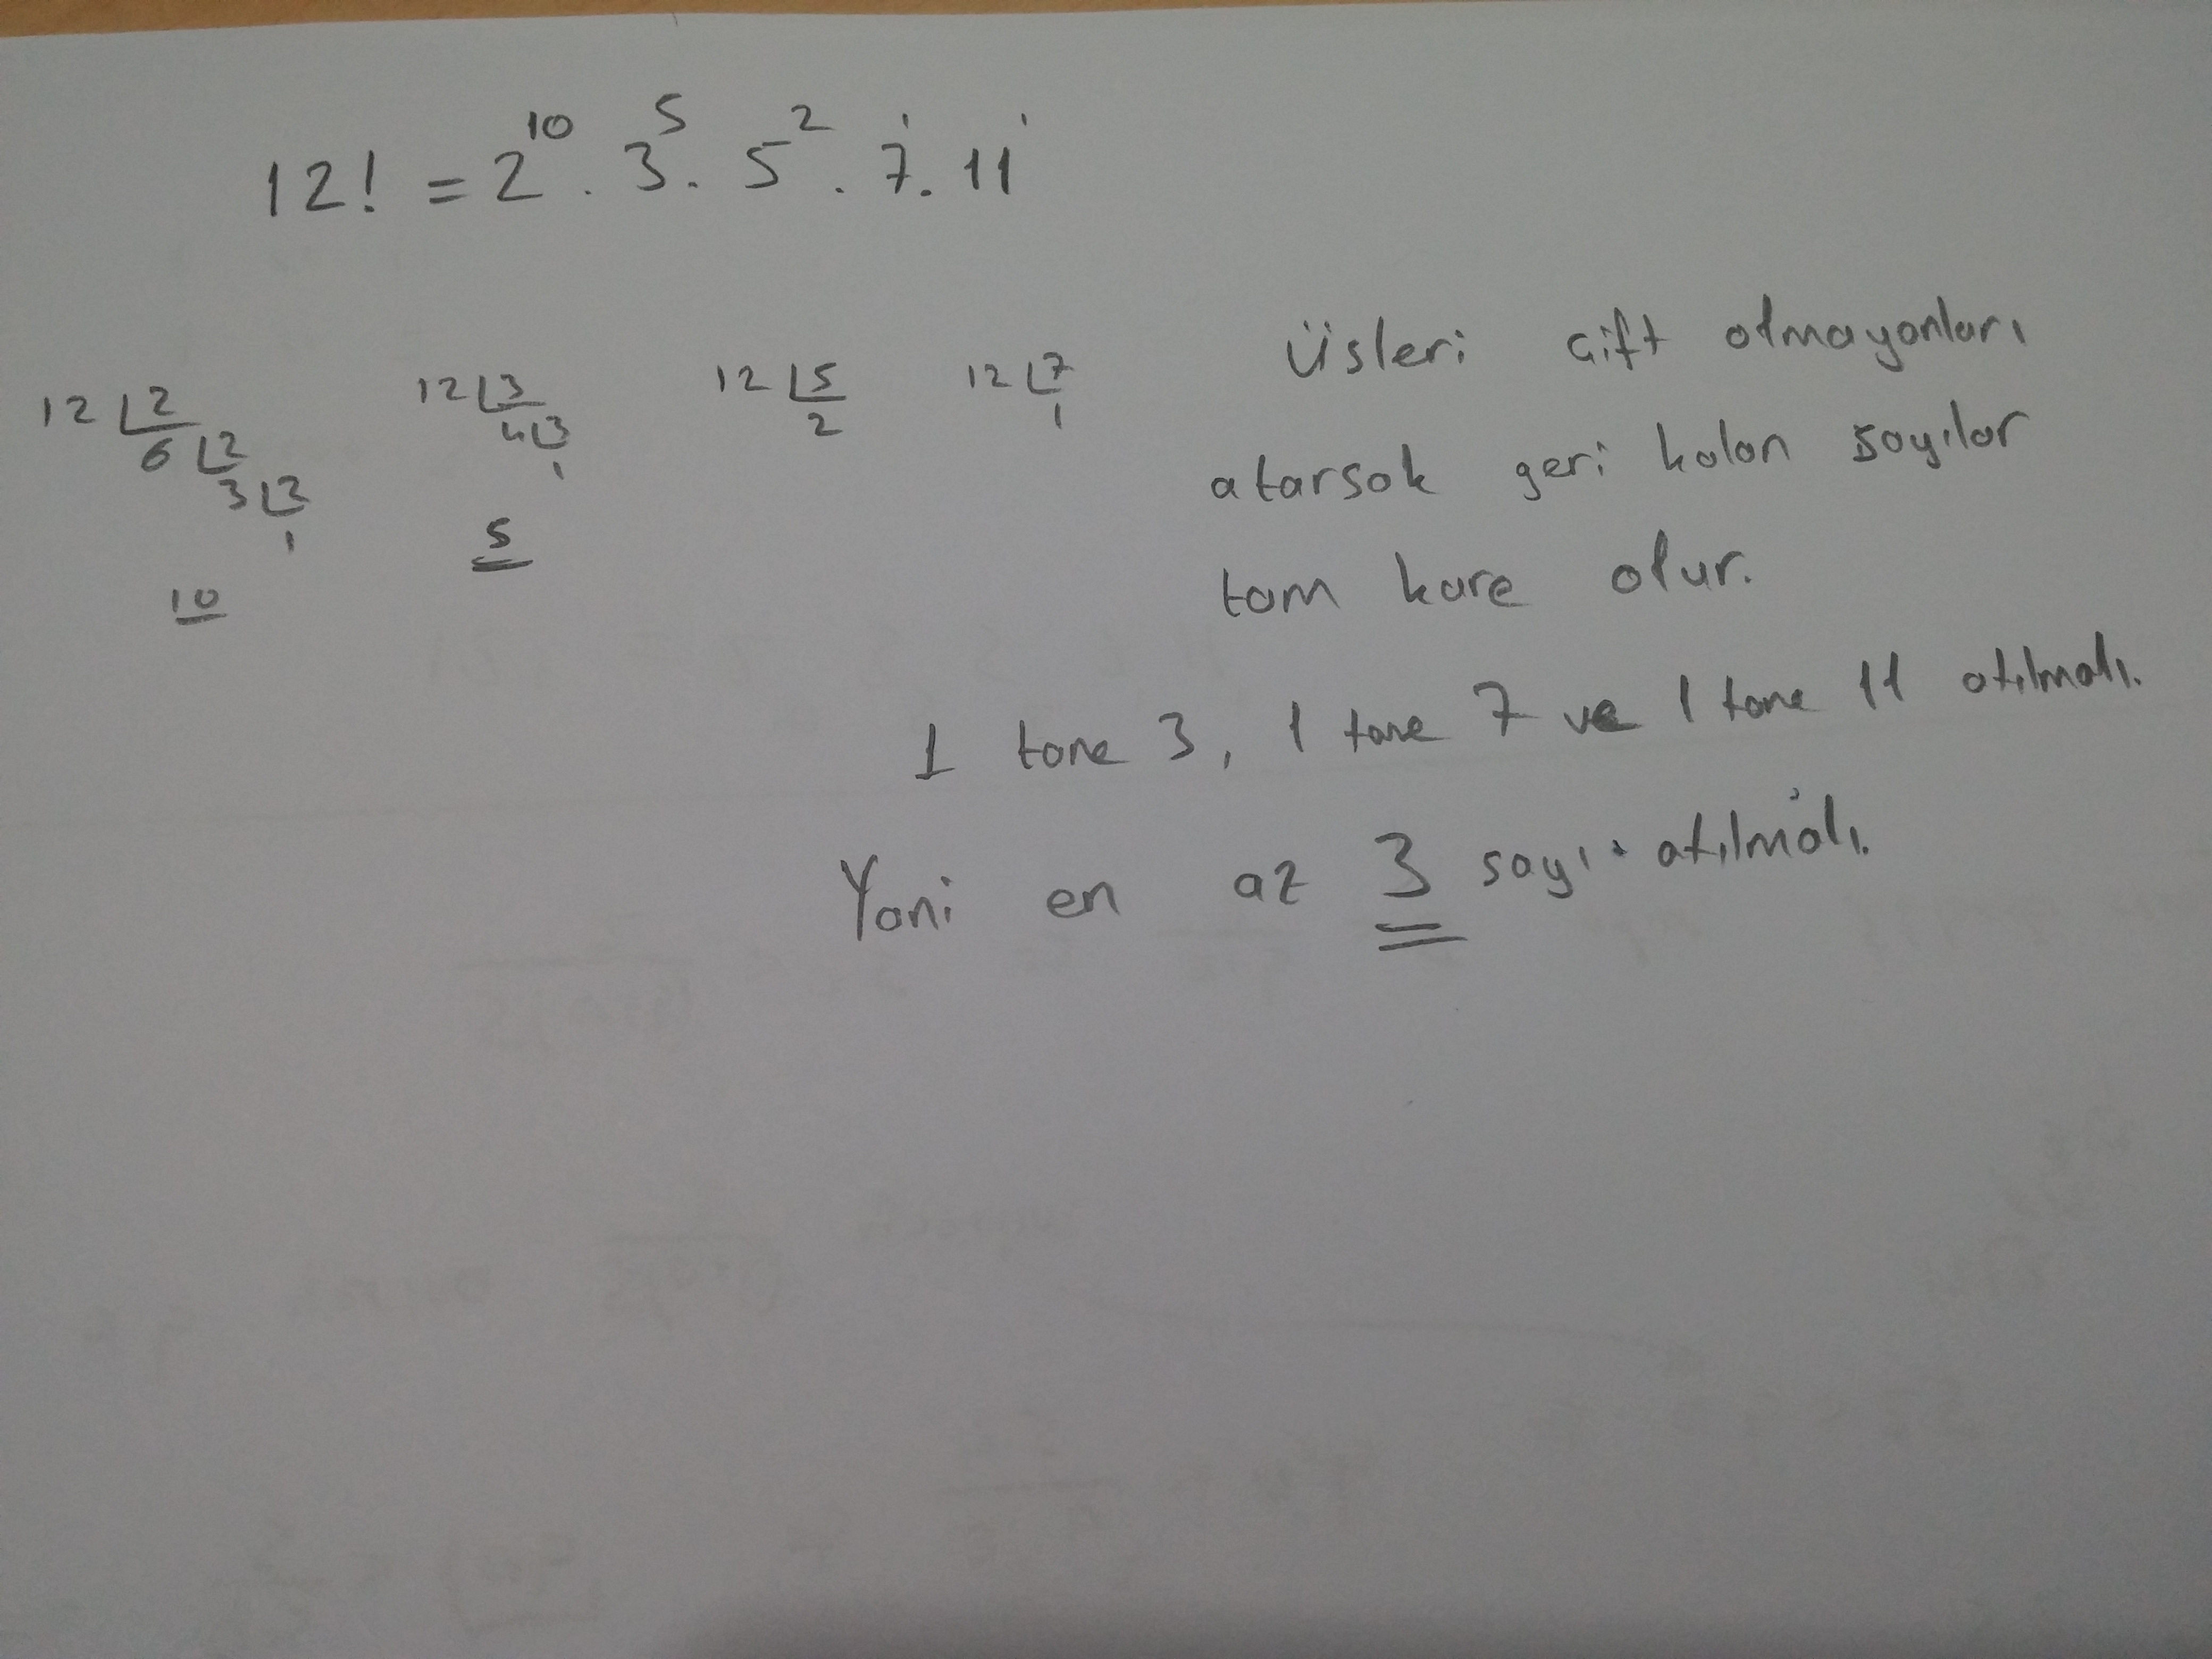 12! = 2¹⁰ . 3⁵ . 5² . 7¹ . 11¹
12 2 12 3 12 5 12 7
6 2 4 3 2 1
3 2 1
1 5
10
Üsleri çift olmayanları
atarsak geri kalan sayılar
tam kare olur.
1 tane 3, 1 tane 7 ve 1 tane 11 atılmalı.
Yani en az 3 sayı atılmalı.